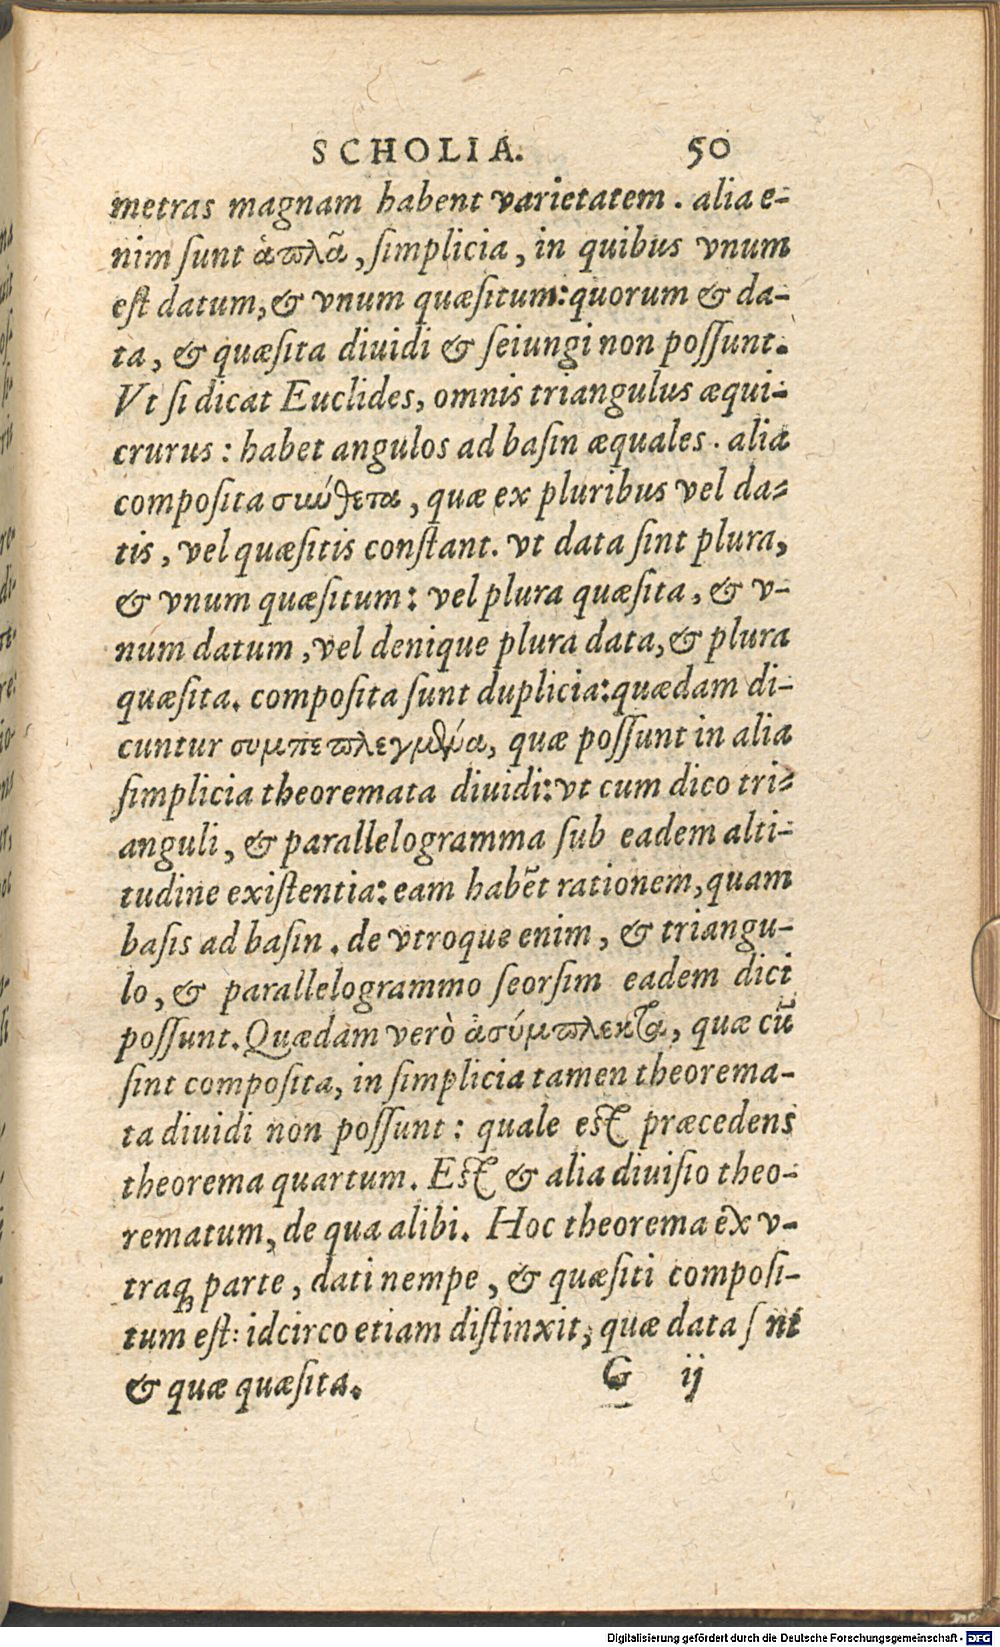 SCHOLIA. 50
metras magnam habent varietatem. alia e-
nim ſunt ἁπλᾶ, ſimplicia, in quibus vnum
eſt datum, & vnum quæſitum: quorum & da-
ta, & quæſita diuidi & ſeiungi non poſſunt.
Vt ſi dicat Euclides, omnis triangulus æqui-
crurus: habet angulos ad baſin æquales. alia
compoſita σύνθετα, quæ ex pluribus vel da-
tis, vel quæſitis conſtant. vt data ſint plura,
& vnum quæſitum: vel plura quæſita, & v-
num datum, vel denique plura data, & plura
quæſita. compoſita ſunt duplicia: quædam di-
cuntur συμπεπλεγμένα, quæ poſſunt in alia
ſimplicia theoremata diuidi: vt cum dico tri-
anguli, & parallelogramma ſub eadem alti-
tudine exiſtentia: eam habẽt rationem, quam
baſis ad baſin. de vtroque enim, & triangu-
lo, & parallelogrammo ſeorſim eadem dici
poſſunt. Quædam verò ἀσύμπλεκτα, quæ cũ
ſint compoſita, in ſimplicia tamen theorema-
ta diuidi non poſſunt: quale eſt præcedens
theorema quartum. Eſt & alia diuiſio theo-
rematum, de qua alibi. Hoc theorema ex v-
traq; parte, dati nempe, & quæſiti compoſi-
tum eſt: idcirco etiam diſtinxit, quæ data ſ nt
& quæ quæſita. G ij
Digitalisierung gefördert durch die Deutsche Forschungsgemeinschaft - DFG